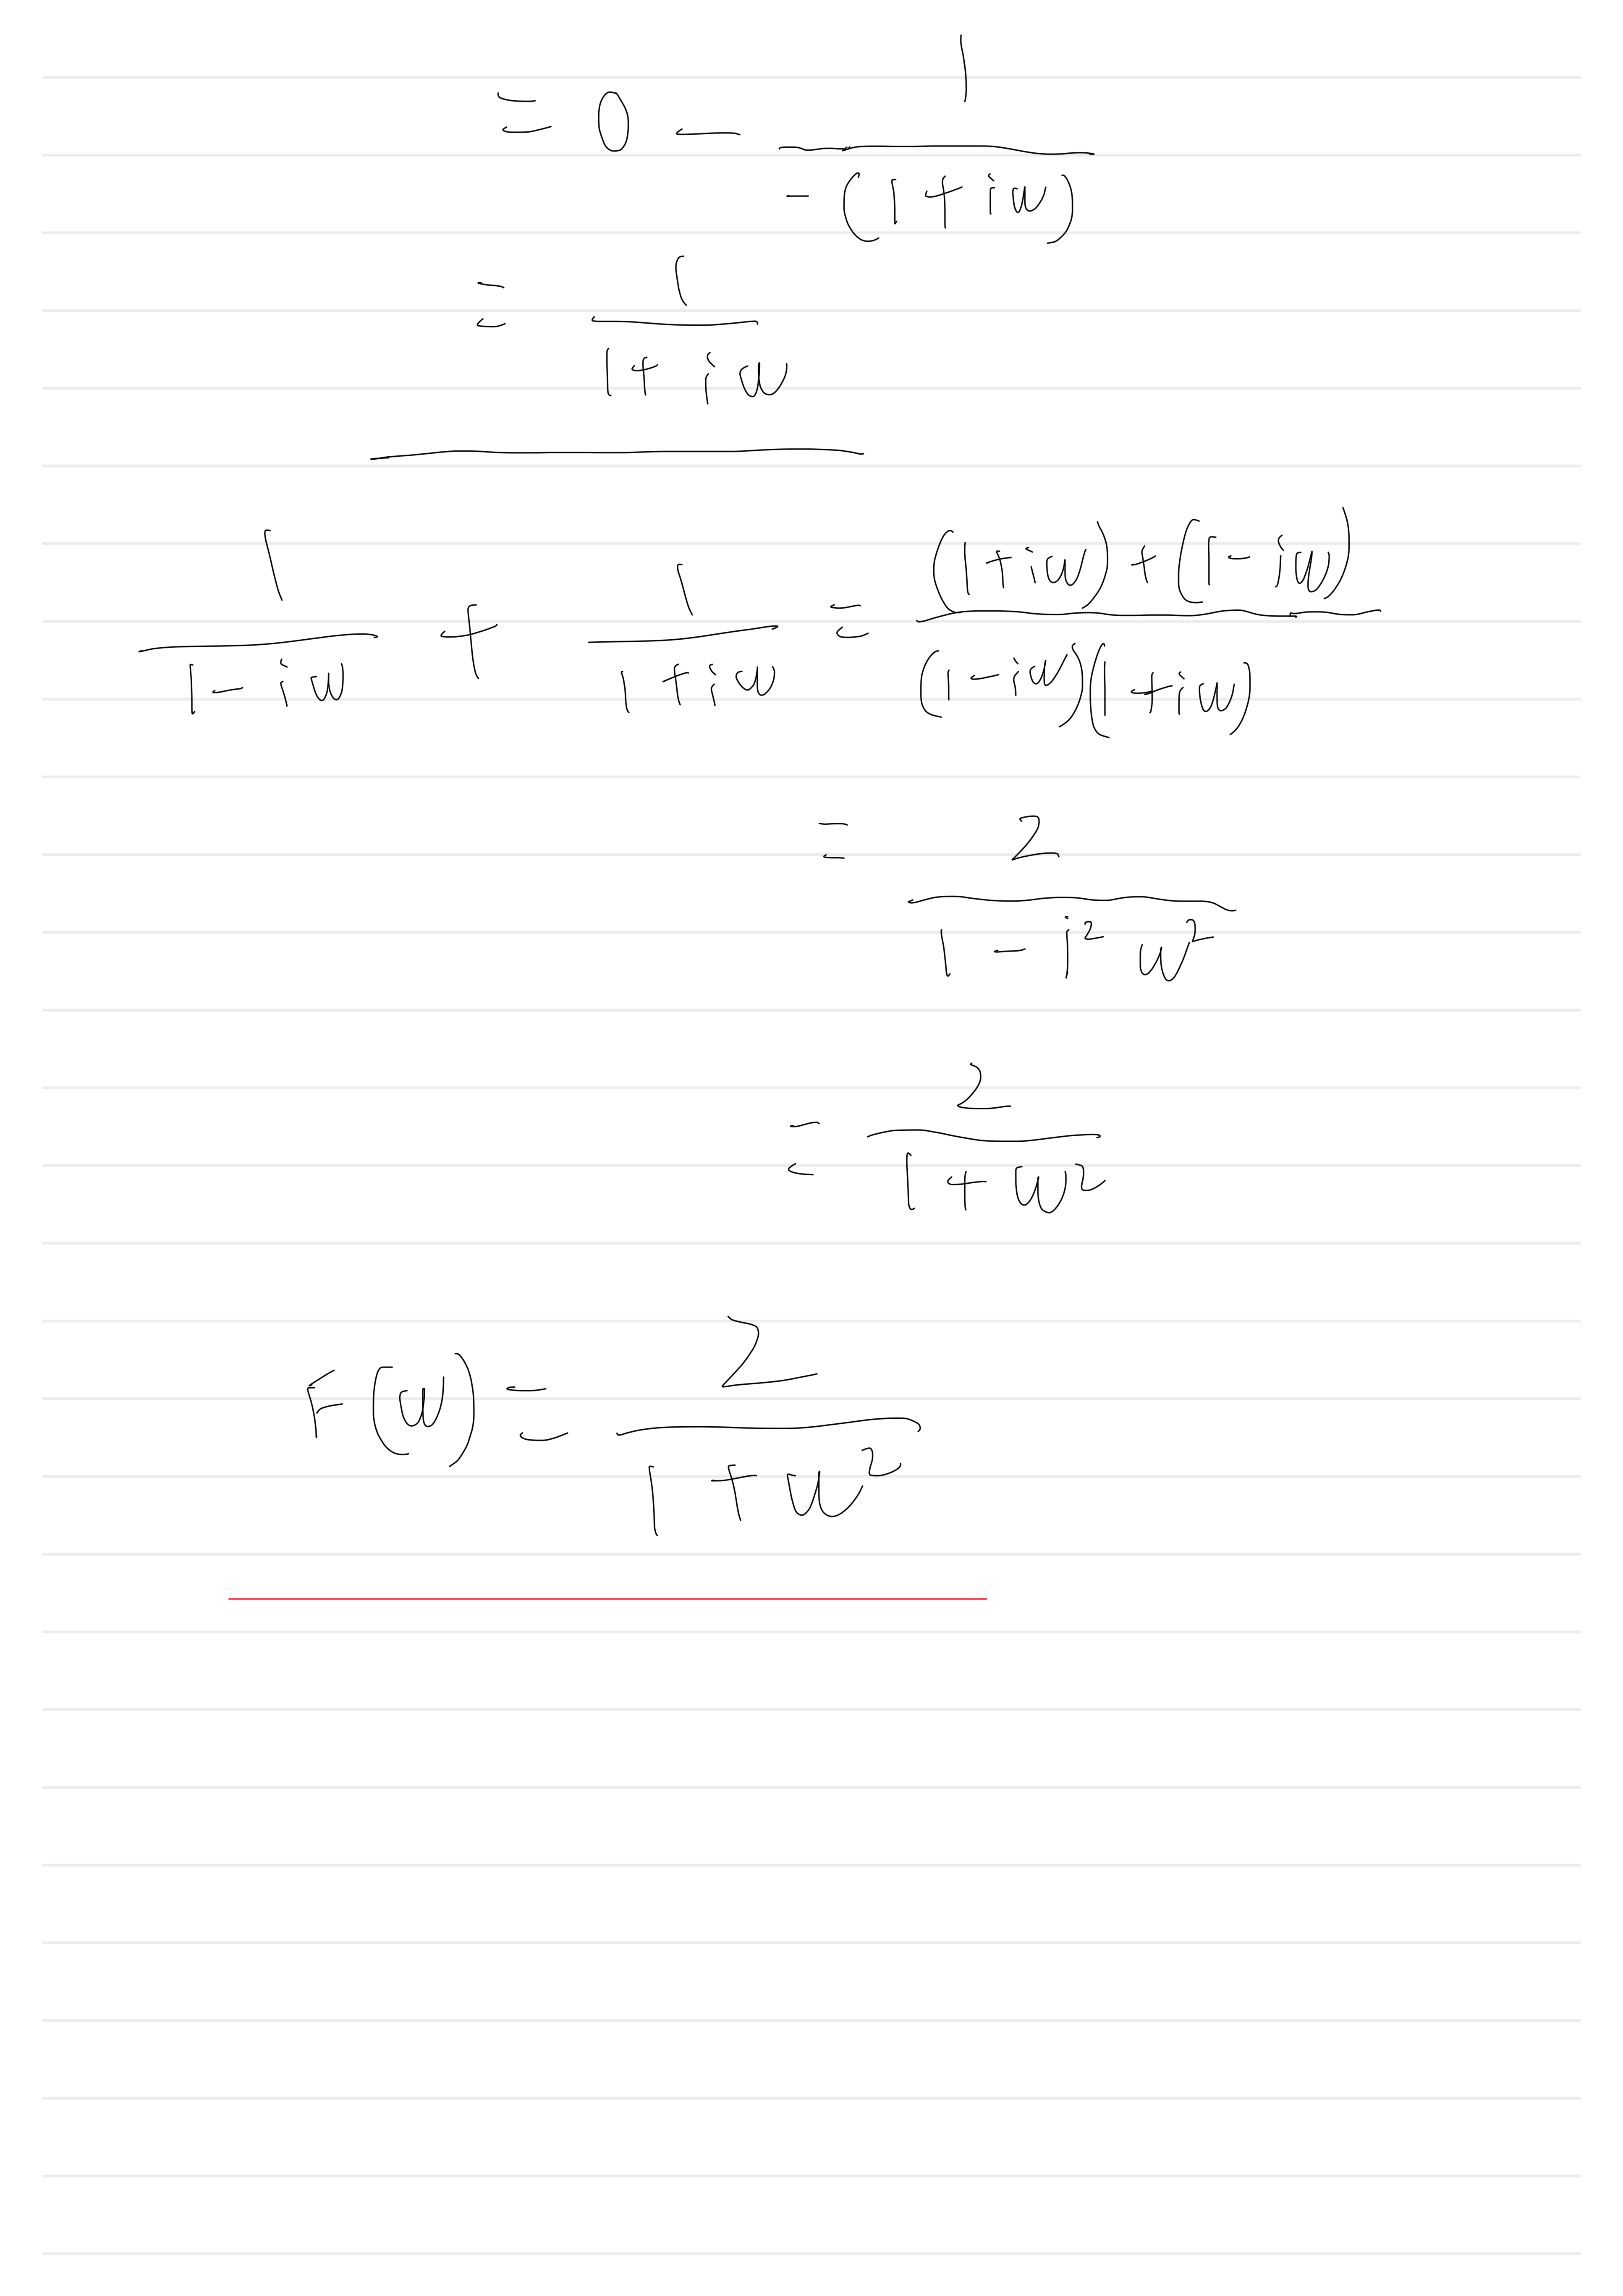 = 0 - 1/(-(1+iω))
= 1/(1+iω)
1/(1-iω) + 1/(1+iω) = ((1+iω)+(1-iω))/((1-iω)(1+iω))
= 2/(1-i²ω²)
= 2/(1+ω²)
F(ω) = 2/(1+ω²)